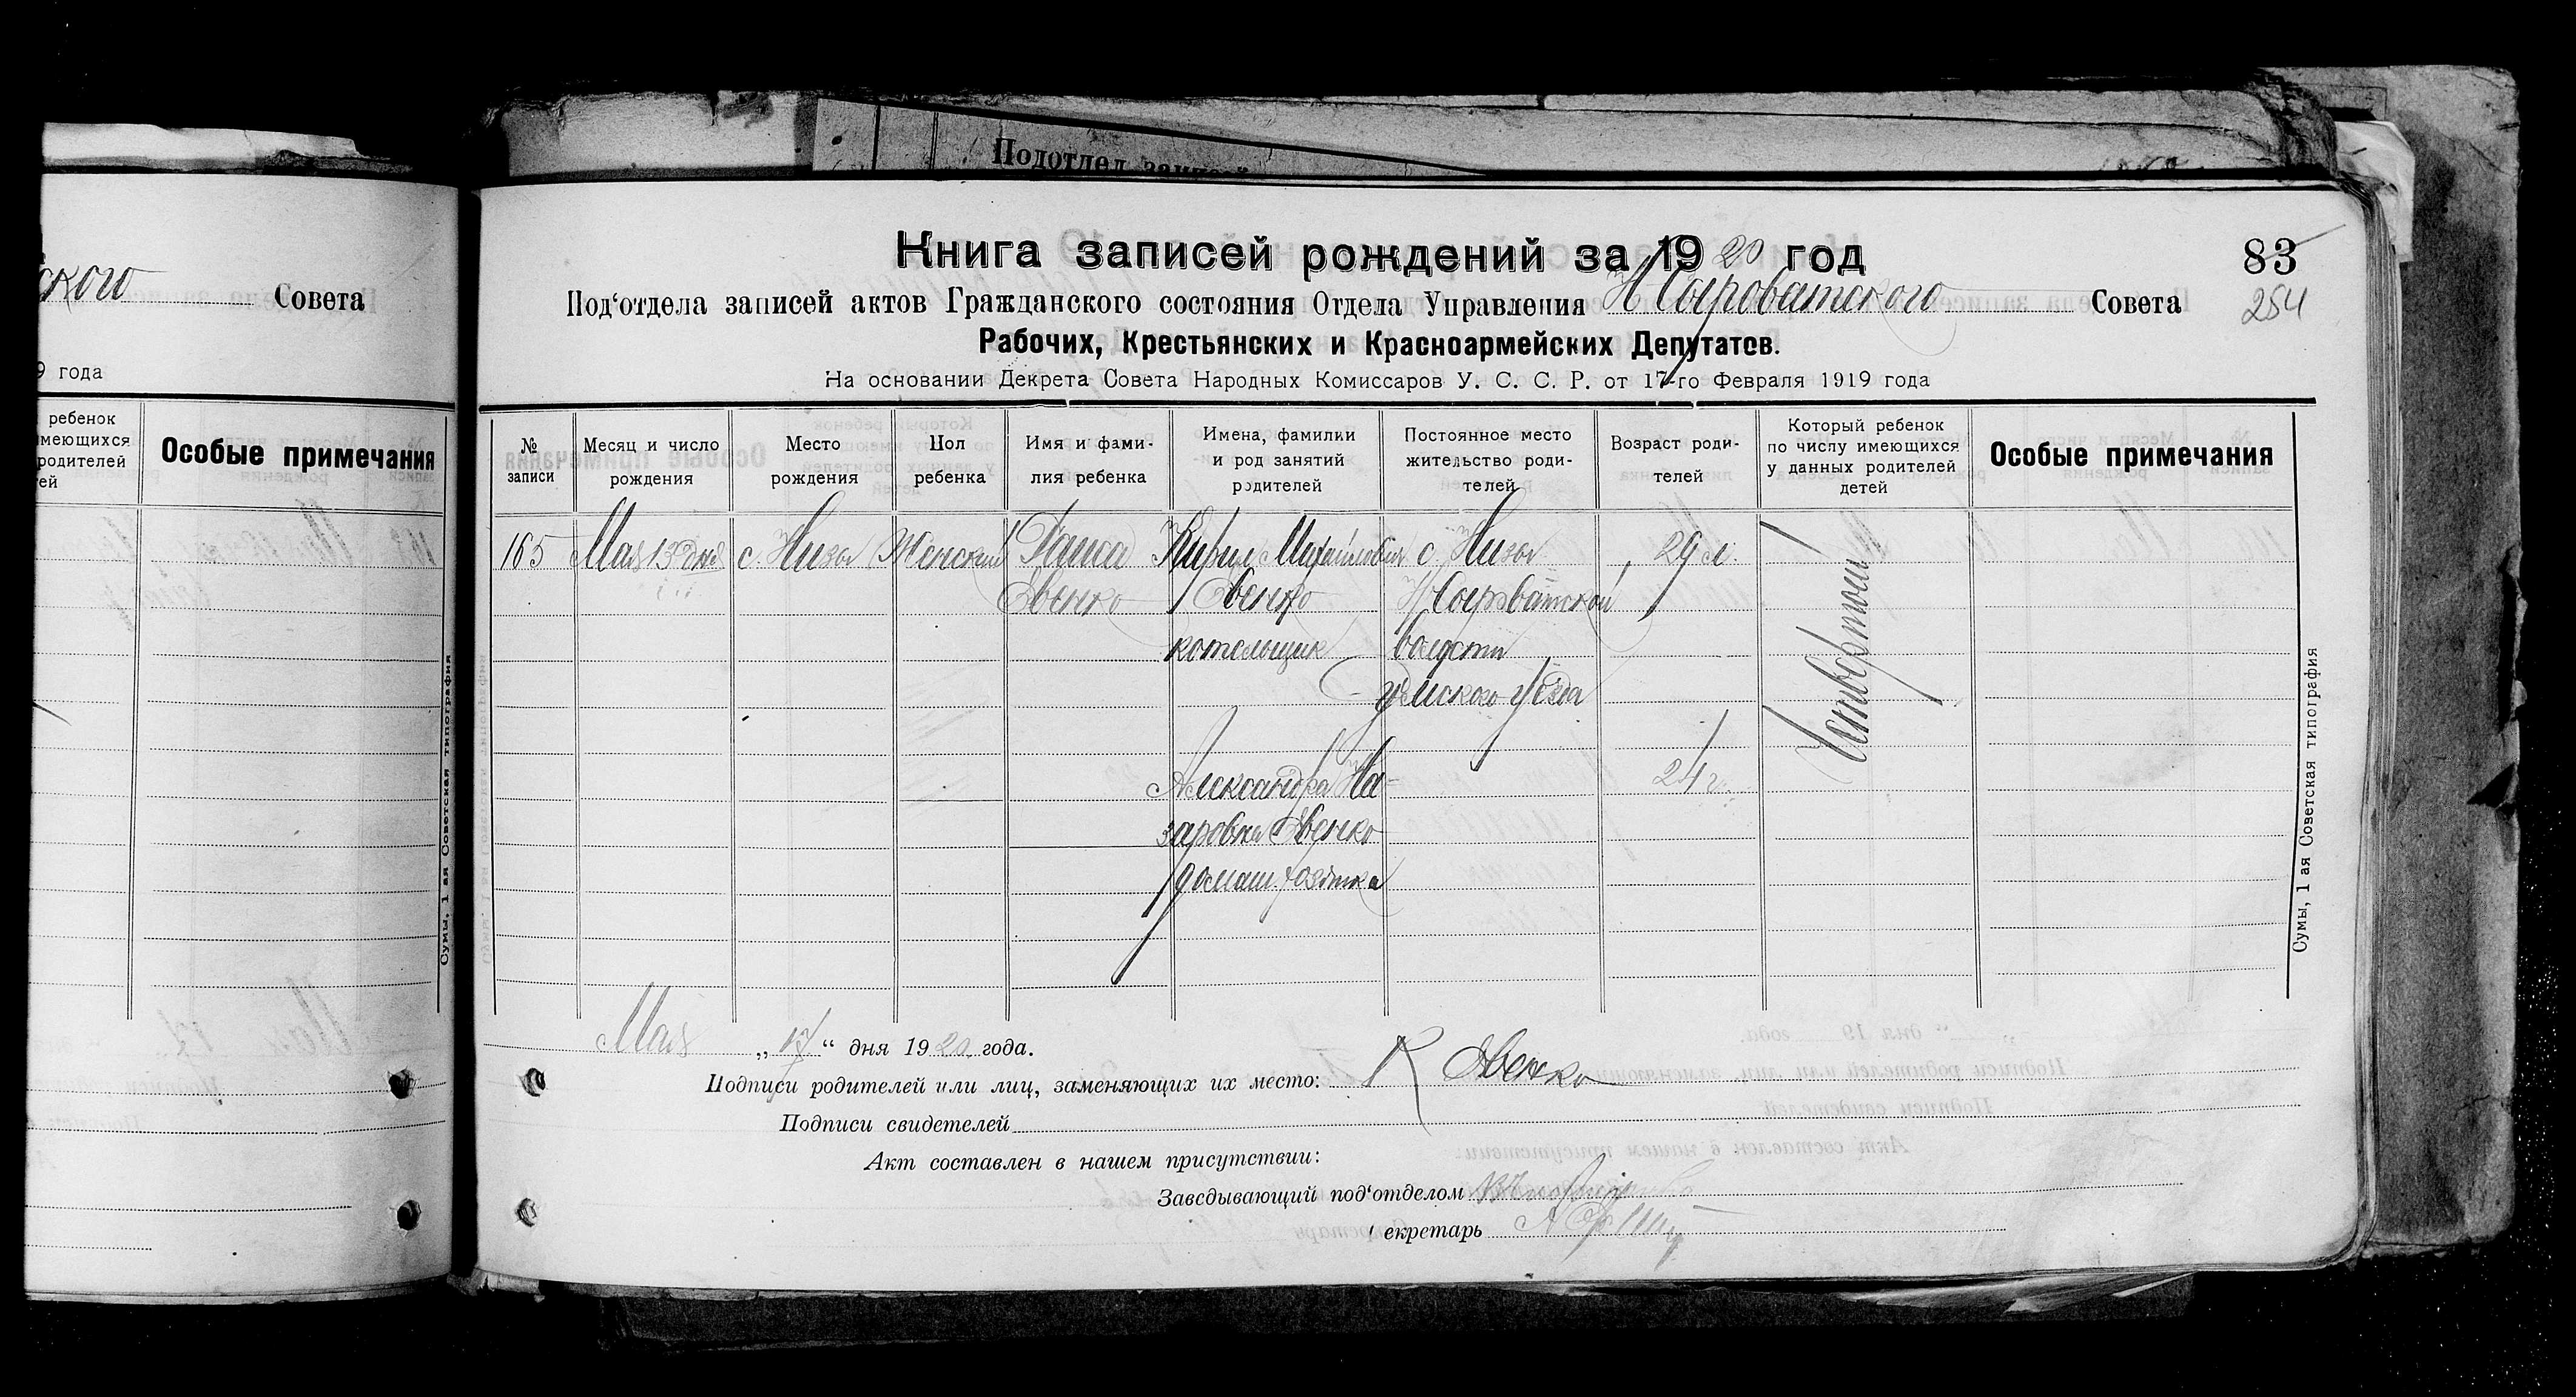 Подотдел
ского Совета
9 года
ребенок
имеющихся
родителей
тей
Особые примечания
Сумы, 1 ая Советская типография
Книга записей рождений за 1920 год
83
254
Под‘отдела записей актов Гражданского состояния Отдела Управления Н Сыроватского Совета
Рабочих, Крестьянских и Красноармейских Депутатов.
На основании Декрета Совета Народных Комиссаров У. С. С. Р. от 17-го Февраля 1919 года
№ записи
Месяц и число рождения
Место рождения
Пол ребенка
Имя и фами-
лия ребенка
Имена, фамилии
и род занятий
родителей
Постоянное место
жительство роди-
телей
Возраст роди-
телей
Который ребенок
по числу имеющихся
у данных родителей
детей
Особые примечания
165 Мая 13 дня с. Низы Женский Раиса Кирил Михайлович с. Низы 29 л. Четвертый
Явенко Явенко Н Сыроватской
котельщик волости
Сумского уезда
Александра На- 24 г.
заровна Явенко
домаш. хозяйка
Сумы, 1 ая Советская типография
Мая „17“ дня 1920 года.
Подписи родителей или лиц, заменяющих их место: К Явенко
Подписи свидетелей
Акт составлен в нашем присутствии:
Заведывающий под‘отделом
екретарь